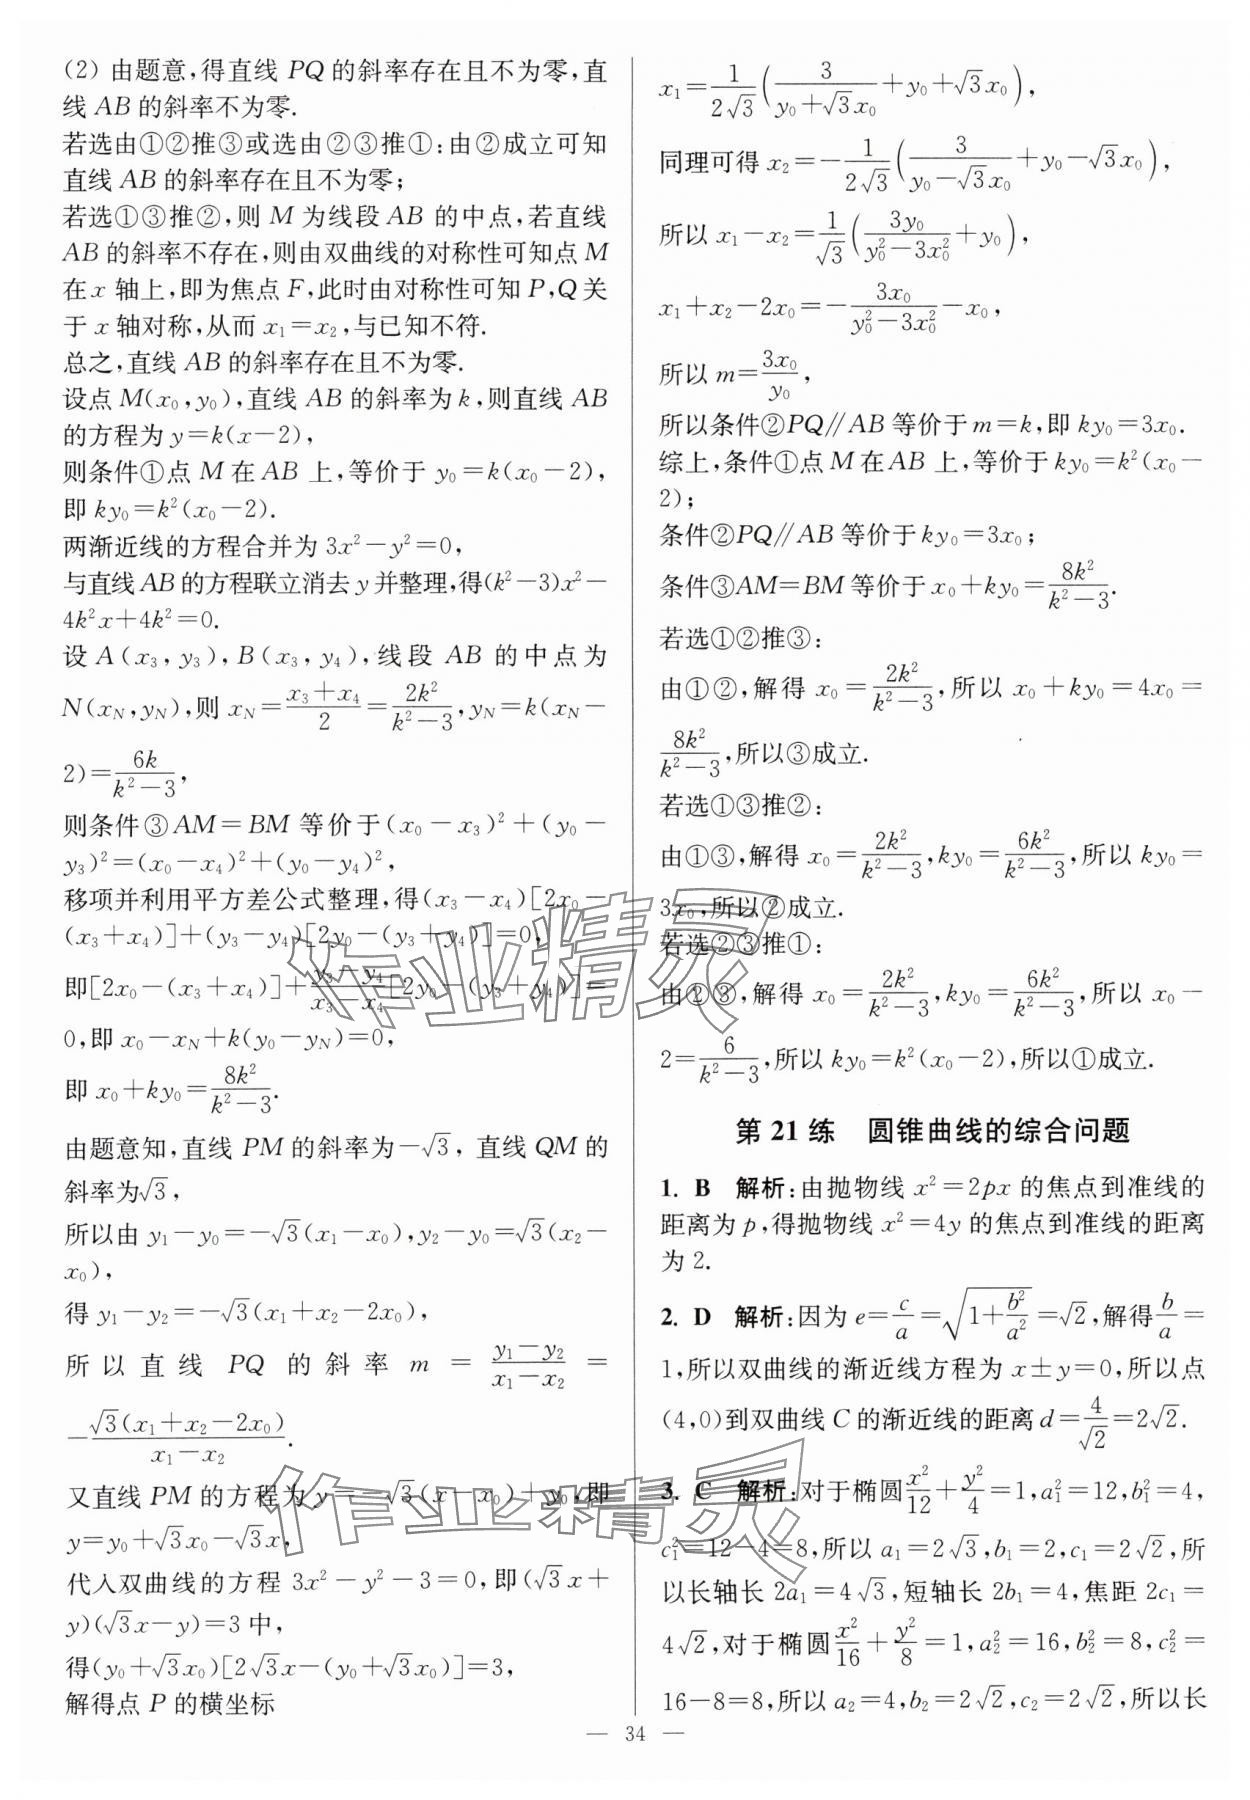 (2) 由题意,得直线 PQ 的斜率存在且不为零,直
线 AB 的斜率不为零.
若选由①②推③或选由②③推①:由②成立可知
直线 AB 的斜率存在且不为零;
若选①③推②,则 M 为线段 AB 的中点,若直线
AB 的斜率不存在,则由双曲线的对称性可知点 M
在 x 轴上,即为焦点 F,此时由对称性可知 P,Q 关
于 x 轴对称,从而 x₁=x₂,与已知不符.
总之,直线 AB 的斜率存在且不为零.
设点 M(x₀,y₀),直线 AB 的斜率为 k,则直线 AB
的方程为 y=k(x-2),
则条件①点 M 在 AB 上,等价于 y₀=k(x₀-2),
即 ky₀=k²(x₀-2).
两渐近线的方程合并为 3x²-y²=0,
与直线 AB 的方程联立消去 y 并整理,得(k²-3)x²-
4k²x+4k²=0.
设 A(x₃,y₃),B(x₃,y₄),线段 AB 的中点为
N(x_N,y_N),则 x_N=(x₃+x₄)/2=2k²/(k²-3),y_N=k(x_N-
2)=6k/(k²-3),
则条件③AM=BM 等价于(x₀-x₃)²+(y₀-
y₃)²=(x₀-x₄)²+(y₀-y₄)²,
移项并利用平方差公式整理,得(x₃-x₄)[2x₀-
(x₃+x₄)]+(y₃-y₄)[2y₀-(y₃+y₄)]=0,
即[2x₀-(x₃+x₄)]+(y₃-y₄)/(x₃-x₄)[2y₀-(y₃+y₄)]=
0,即 x₀-x_N+k(y₀-y_N)=0,
即 x₀+ky₀=8k²/(k²-3).
由题意知,直线 PM 的斜率为-√3,直线 QM 的
斜率为√3,
所以由 y₁-y₀=-√3(x₁-x₀),y₂-y₀=√3(x₂-
x₀),
得 y₁-y₂=-√3(x₁+x₂-2x₀),
所以直线 PQ 的斜率 m=(y₁-y₂)/(x₁-x₂)=
-√3(x₁+x₂-2x₀)/(x₁-x₂).
又直线 PM 的方程为 y=-√3(x-x₀)+y₀,即
y=y₀+√3x₀-√3x,
代入双曲线的方程 3x²-y²-3=0,即(√3x+
y)(√3x-y)=3 中,
得(y₀+√3x₀)[2√3x-(y₀+√3x₀)]=3,
解得点 P 的横坐标
x₁=1/(2√3)(3/(y₀+√3x₀)+y₀+√3x₀),
同理可得 x₂=-1/(2√3)(3/(y₀-√3x₀)+y₀-√3x₀),
所以 x₁-x₂=1/√3(3y₀/(y₀²-3x₀²)+y₀),
x₁+x₂-2x₀=-3x₀/(y₀²-3x₀²)-x₀,
所以 m=3x₀/y₀,
所以条件②PQ∥AB 等价于 m=k,即 ky₀=3x₀.
综上,条件①点 M 在 AB 上,等价于 ky₀=k²(x₀-
2);
条件②PQ∥AB 等价于 ky₀=3x₀;
条件③AM=BM 等价于 x₀+ky₀=8k²/(k²-3).
若选①②推③:
由①②,解得 x₀=2k²/(k²-3),所以 x₀+ky₀=4x₀=
8k²/(k²-3),所以③成立.
若选①③推②:
由①③,解得 x₀=2k²/(k²-3),ky₀=6k²/(k²-3),所以 ky₀=
3x₀,所以②成立.
若选②③推①:
由②③,解得 x₀=2k²/(k²-3),ky₀=6k²/(k²-3),所以 x₀-
2=6/(k²-3),所以 ky₀=k²(x₀-2),所以①成立.
第 21 练 圆锥曲线的综合问题
1. B 解析:由抛物线 x²=2px 的焦点到准线的
距离为 p,得抛物线 x²=4y 的焦点到准线的距离
为 2.
2. D 解析:因为 e=c/a=√(1+b²/a²)=√2,解得b/a=
1,所以双曲线的渐近线方程为 x±y=0,所以点
(4,0)到双曲线 C 的渐近线的距离 d=4/√2=2√2.
3. C 解析:对于椭圆x²/12+y²/4=1,a₁²=12,b₁²=4,
c₁²=12-4=8,所以 a₁=2√3,b₁=2,c₁=2√2,所
以长轴长 2a₁=4√3,短轴长 2b₁=4,焦距 2c₁=
4√2,对于椭圆x²/16+y²/8=1,a₂²=16,b₂²=8,c₂²=
16-8=8,所以 a₂=4,b₂=2√2,c₂=2√2,所以长
— 34 —
作业精灵
作业精灵